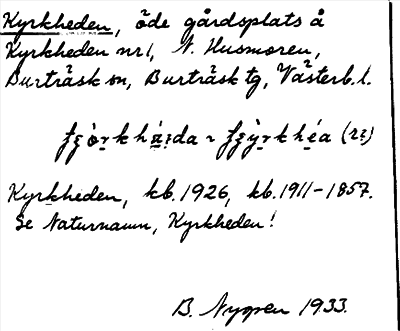 Kyrkheden, öde gårdsplats å
Kyrkheden nr 1, N. Husmoren,
Burträsk sn, Burträsk tg, Västerb. l.
Kyrkheden, kb. 1926, kb. 1911–1857.
Se Naturnamn, Kyrkheden!
B. Nygren 1933.